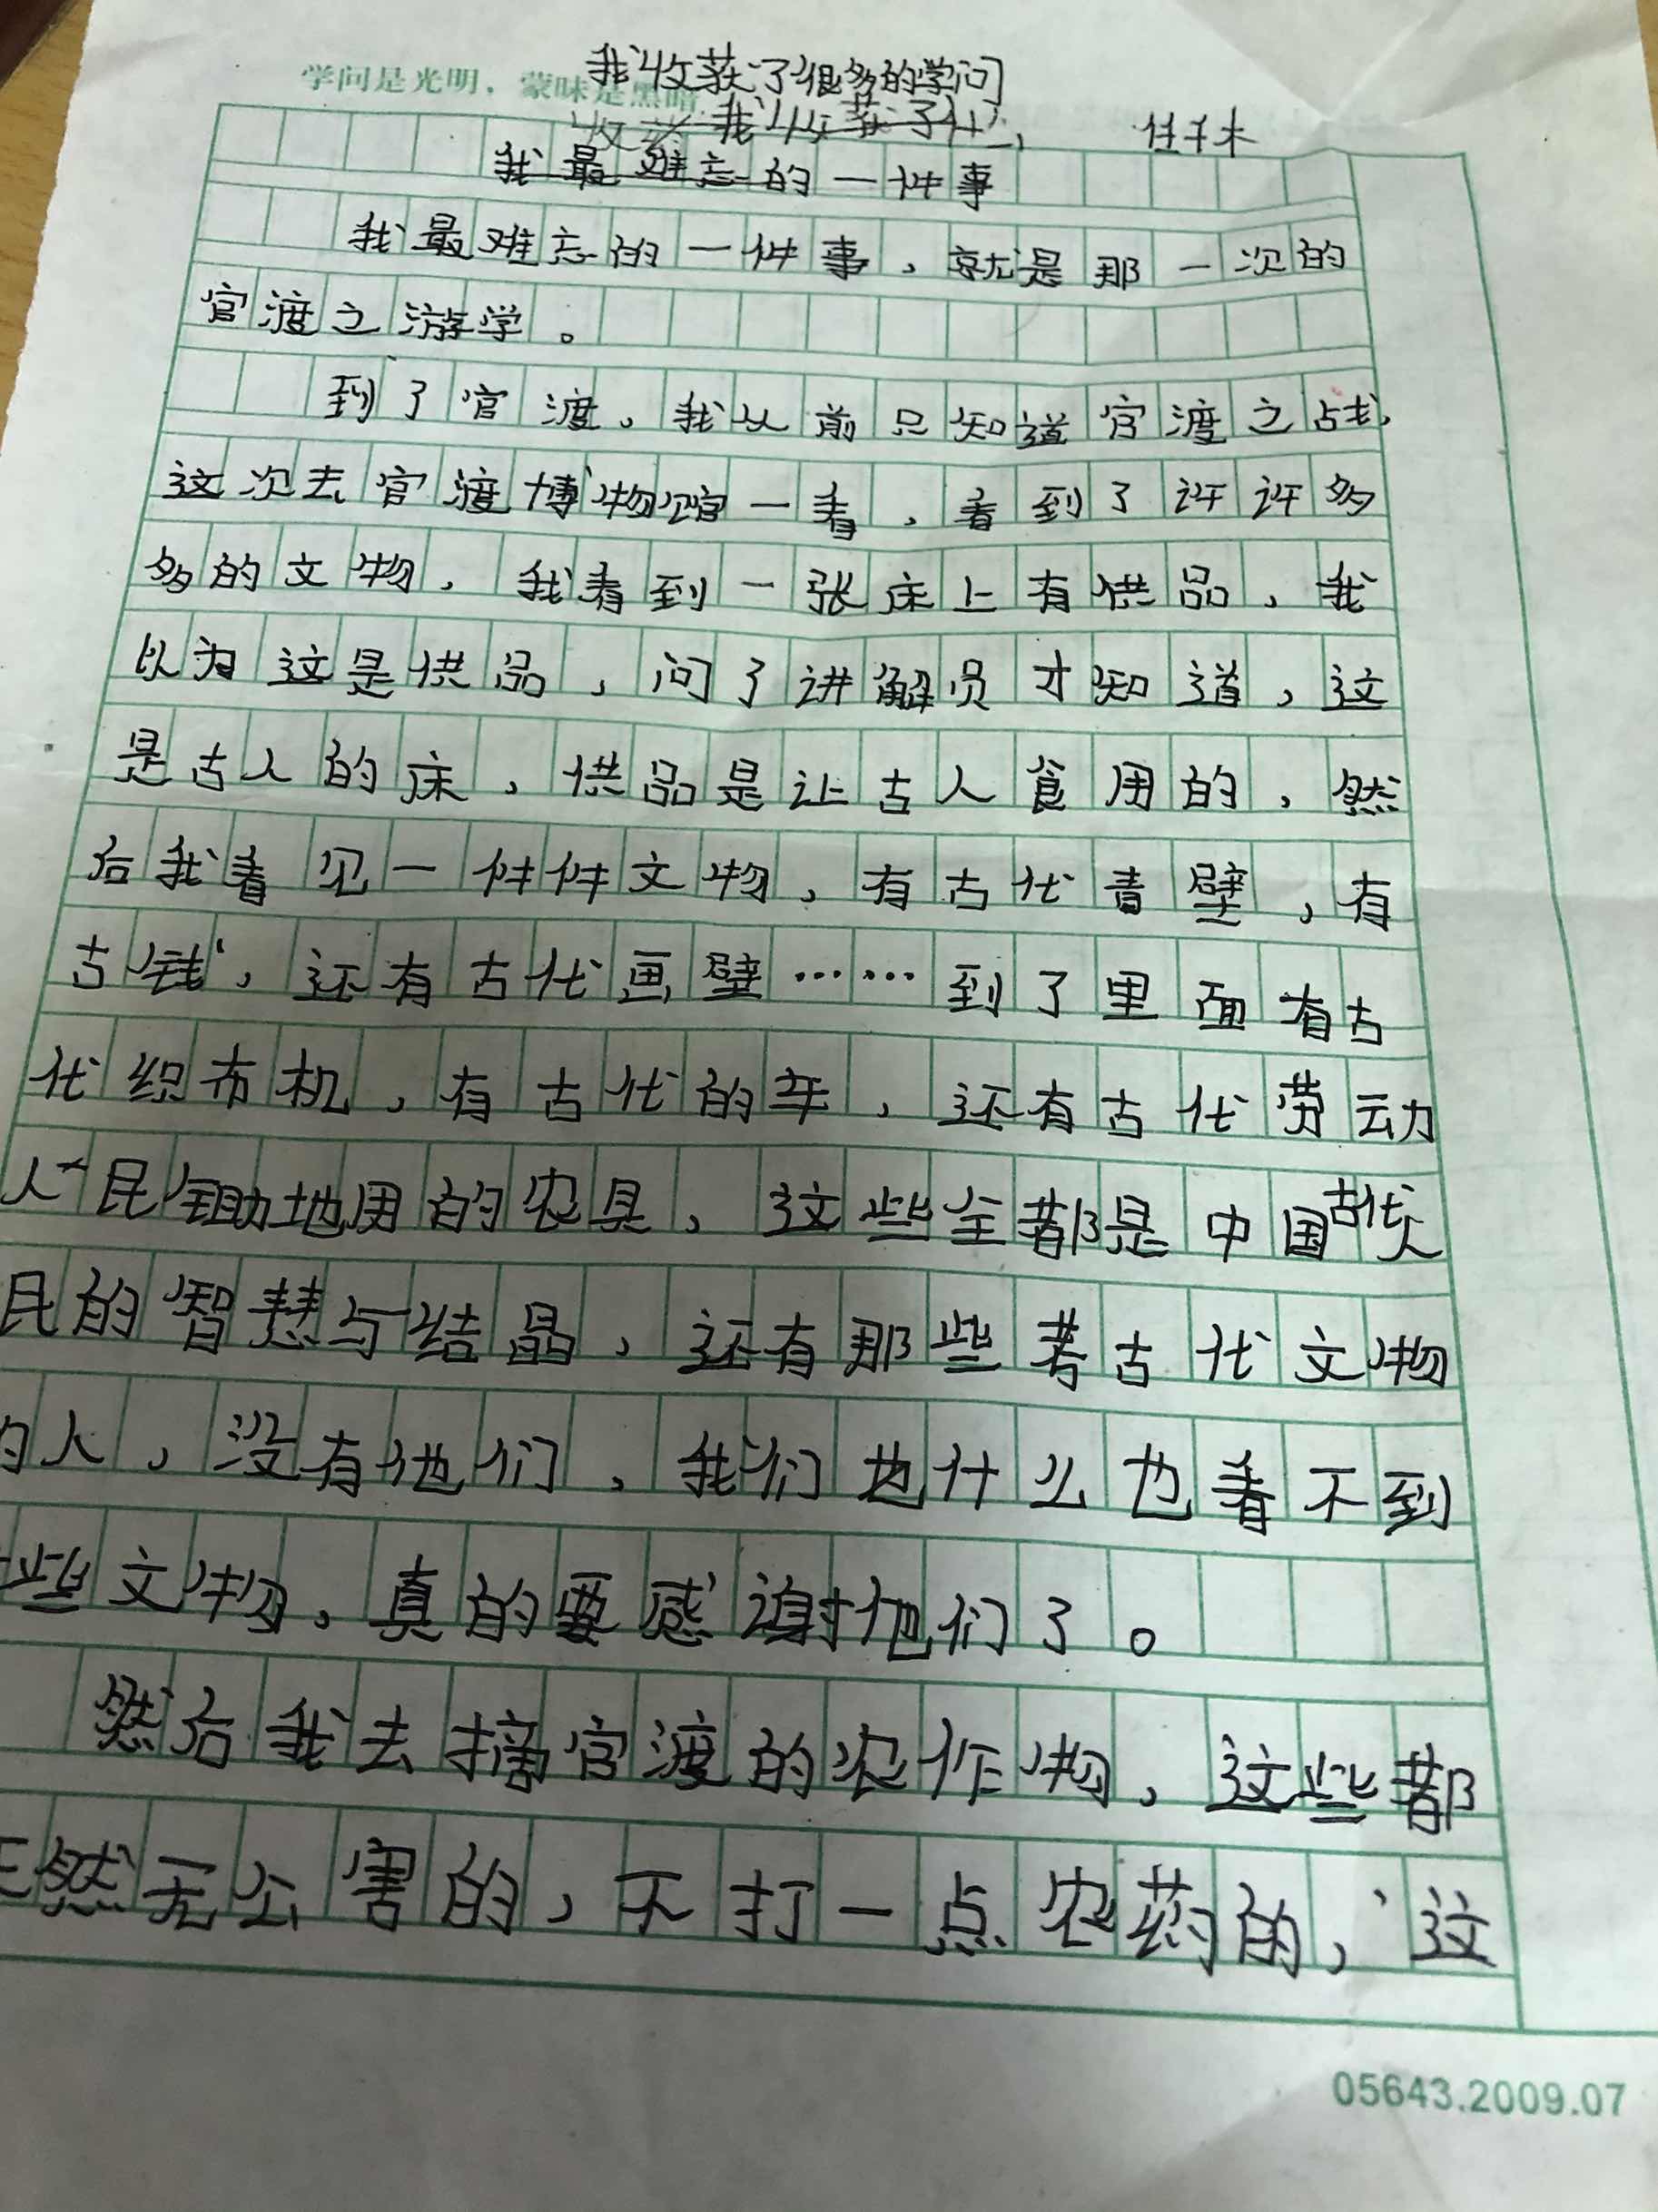 我收获了很多的学问
学问是光明，蒙昧是黑暗
我收获了
我最难忘的一件事
我最难忘的一件事，就是那一次的
官渡之游学。
到了官渡，我从前只知道官渡之战，
这次去官渡博物馆一看，看到了许许多
多的文物，我看到一张床上有供品，我
以为这是供品，问了讲解员才知道，这
是古人的床，供品是让古人食用的，然
后我看见一件件文物，有古代青壁，有
古钱，还有古代画壁……到了里面有古
代织布机，有古代的车，还有古代劳动
人民锄地用的农具，这些全都是中国古代人
民的智慧与结晶，还有那些考古代文物
的人，没有他们，我们也什么也看不到
些文物，真的要感谢他们了。
然后我去摘官渡的农作物，这些都
然无公害的，不打一点农药的，这
05643.2009.07